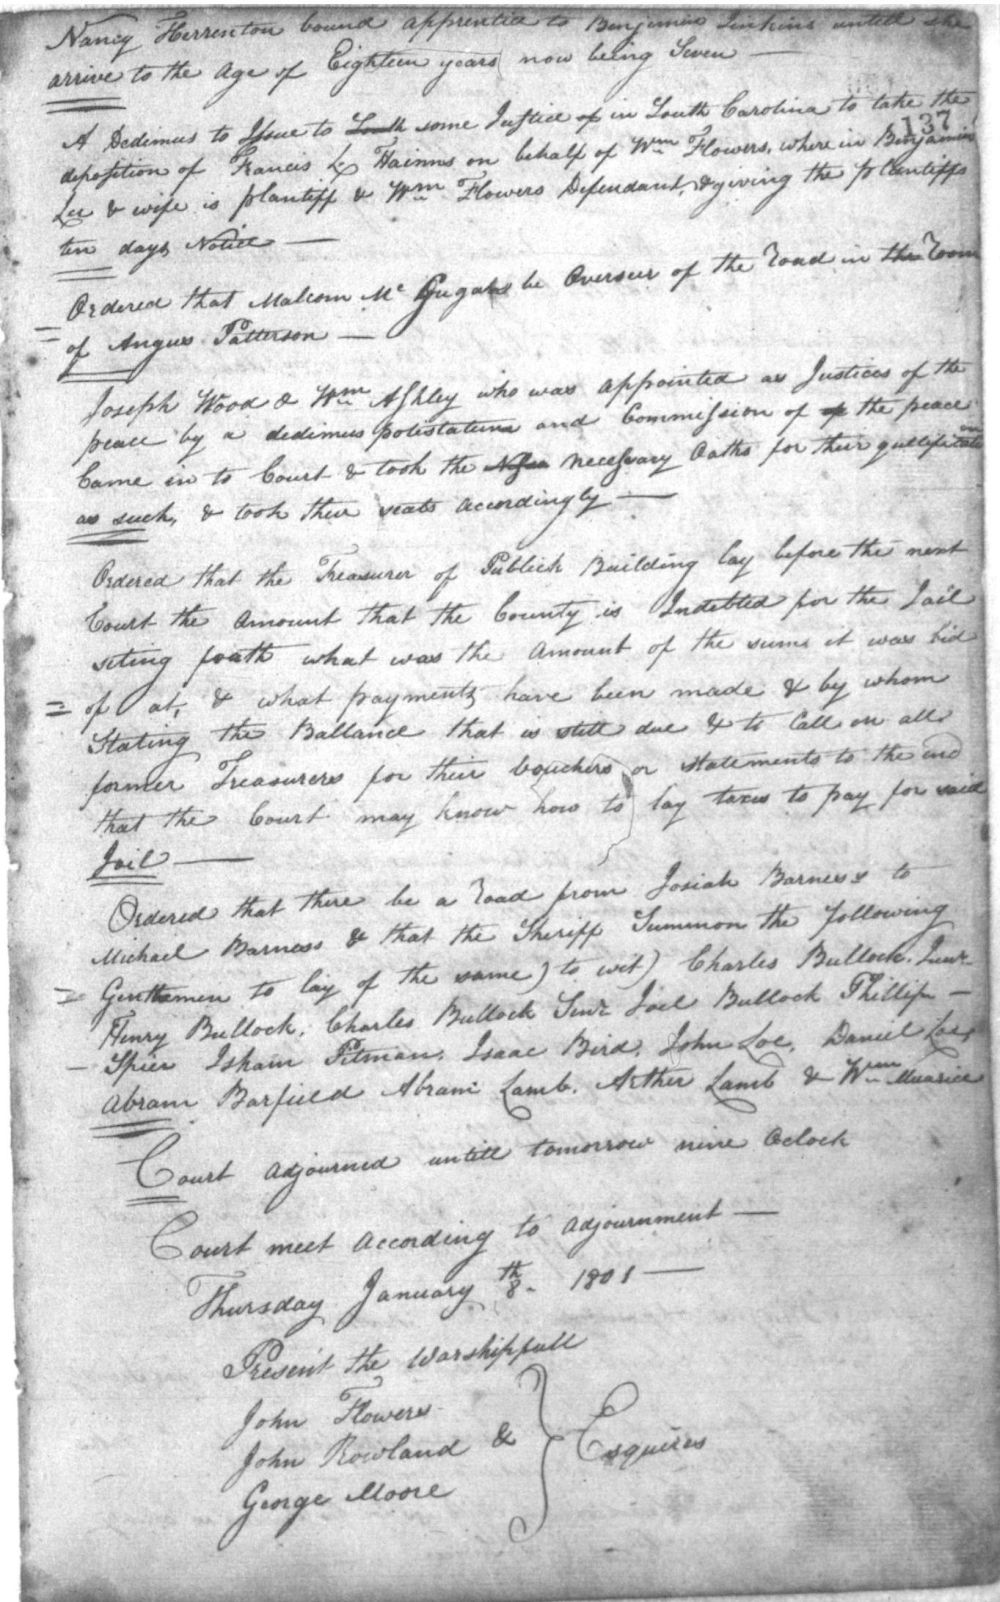 Nancy Herrenton bound apprentice to Benjamin Jenkins untill she
arrive to the Age of Eighteen years now being Seven —
137
A Dedimus to Issue to South some Justice of in South Carolina to take the
deposition of Francis Hainns on behalf of Wm Flowers, where in Benjamin
Lee & wife is plantiff & Wm Flowers Defendant, & giving the plantiffs
ten days Notice —
Ordered that Malcom Mc Gugan be Overseer of the Road in the Room
of Angus Patterson —
Joseph Wood & Wm Ashley who was appointed as Justices of the
peace by a dedimus potestatem and Commission of of the peace
Came in to Court & took the necessary Oaths for their qullification
as such, & took their seats accordingly —
Ordered that the Treasurer of Publick Building lay before the next
Court the Amount that the County is Indebted for the Jail
seting foath what was the Amount of the sums it was bid
of at, & what payments have been made & by whom
Stating the Ballance that is still due & to Call on all
former Treasurers for their vouchers or statements to the end
that the Court may know how to lay taxes to pay for said
Jail —
Ordered that there be a road from Josiah Barness to
Michael Barness & that the Sheriff Summon the following
Gentlemen to lay of the same) to wit) Charles Bullock. Junr
Henry Bullock, Charles Bullock Senr Joel Bullock Phillip —
Spier Isham Pitman, Isaac Bird, John Loe, Daniel Loe,
Abram Barfield Abram Lamb. Arther Lamb & Wm Muarice
Court adjourned untill tomorrow nine Oclock
Court meet according to adjournment —
Thursday January 8th 1801 —
Present the Worshipfull
John Flowers
John Rowland & Esquires
George Moore